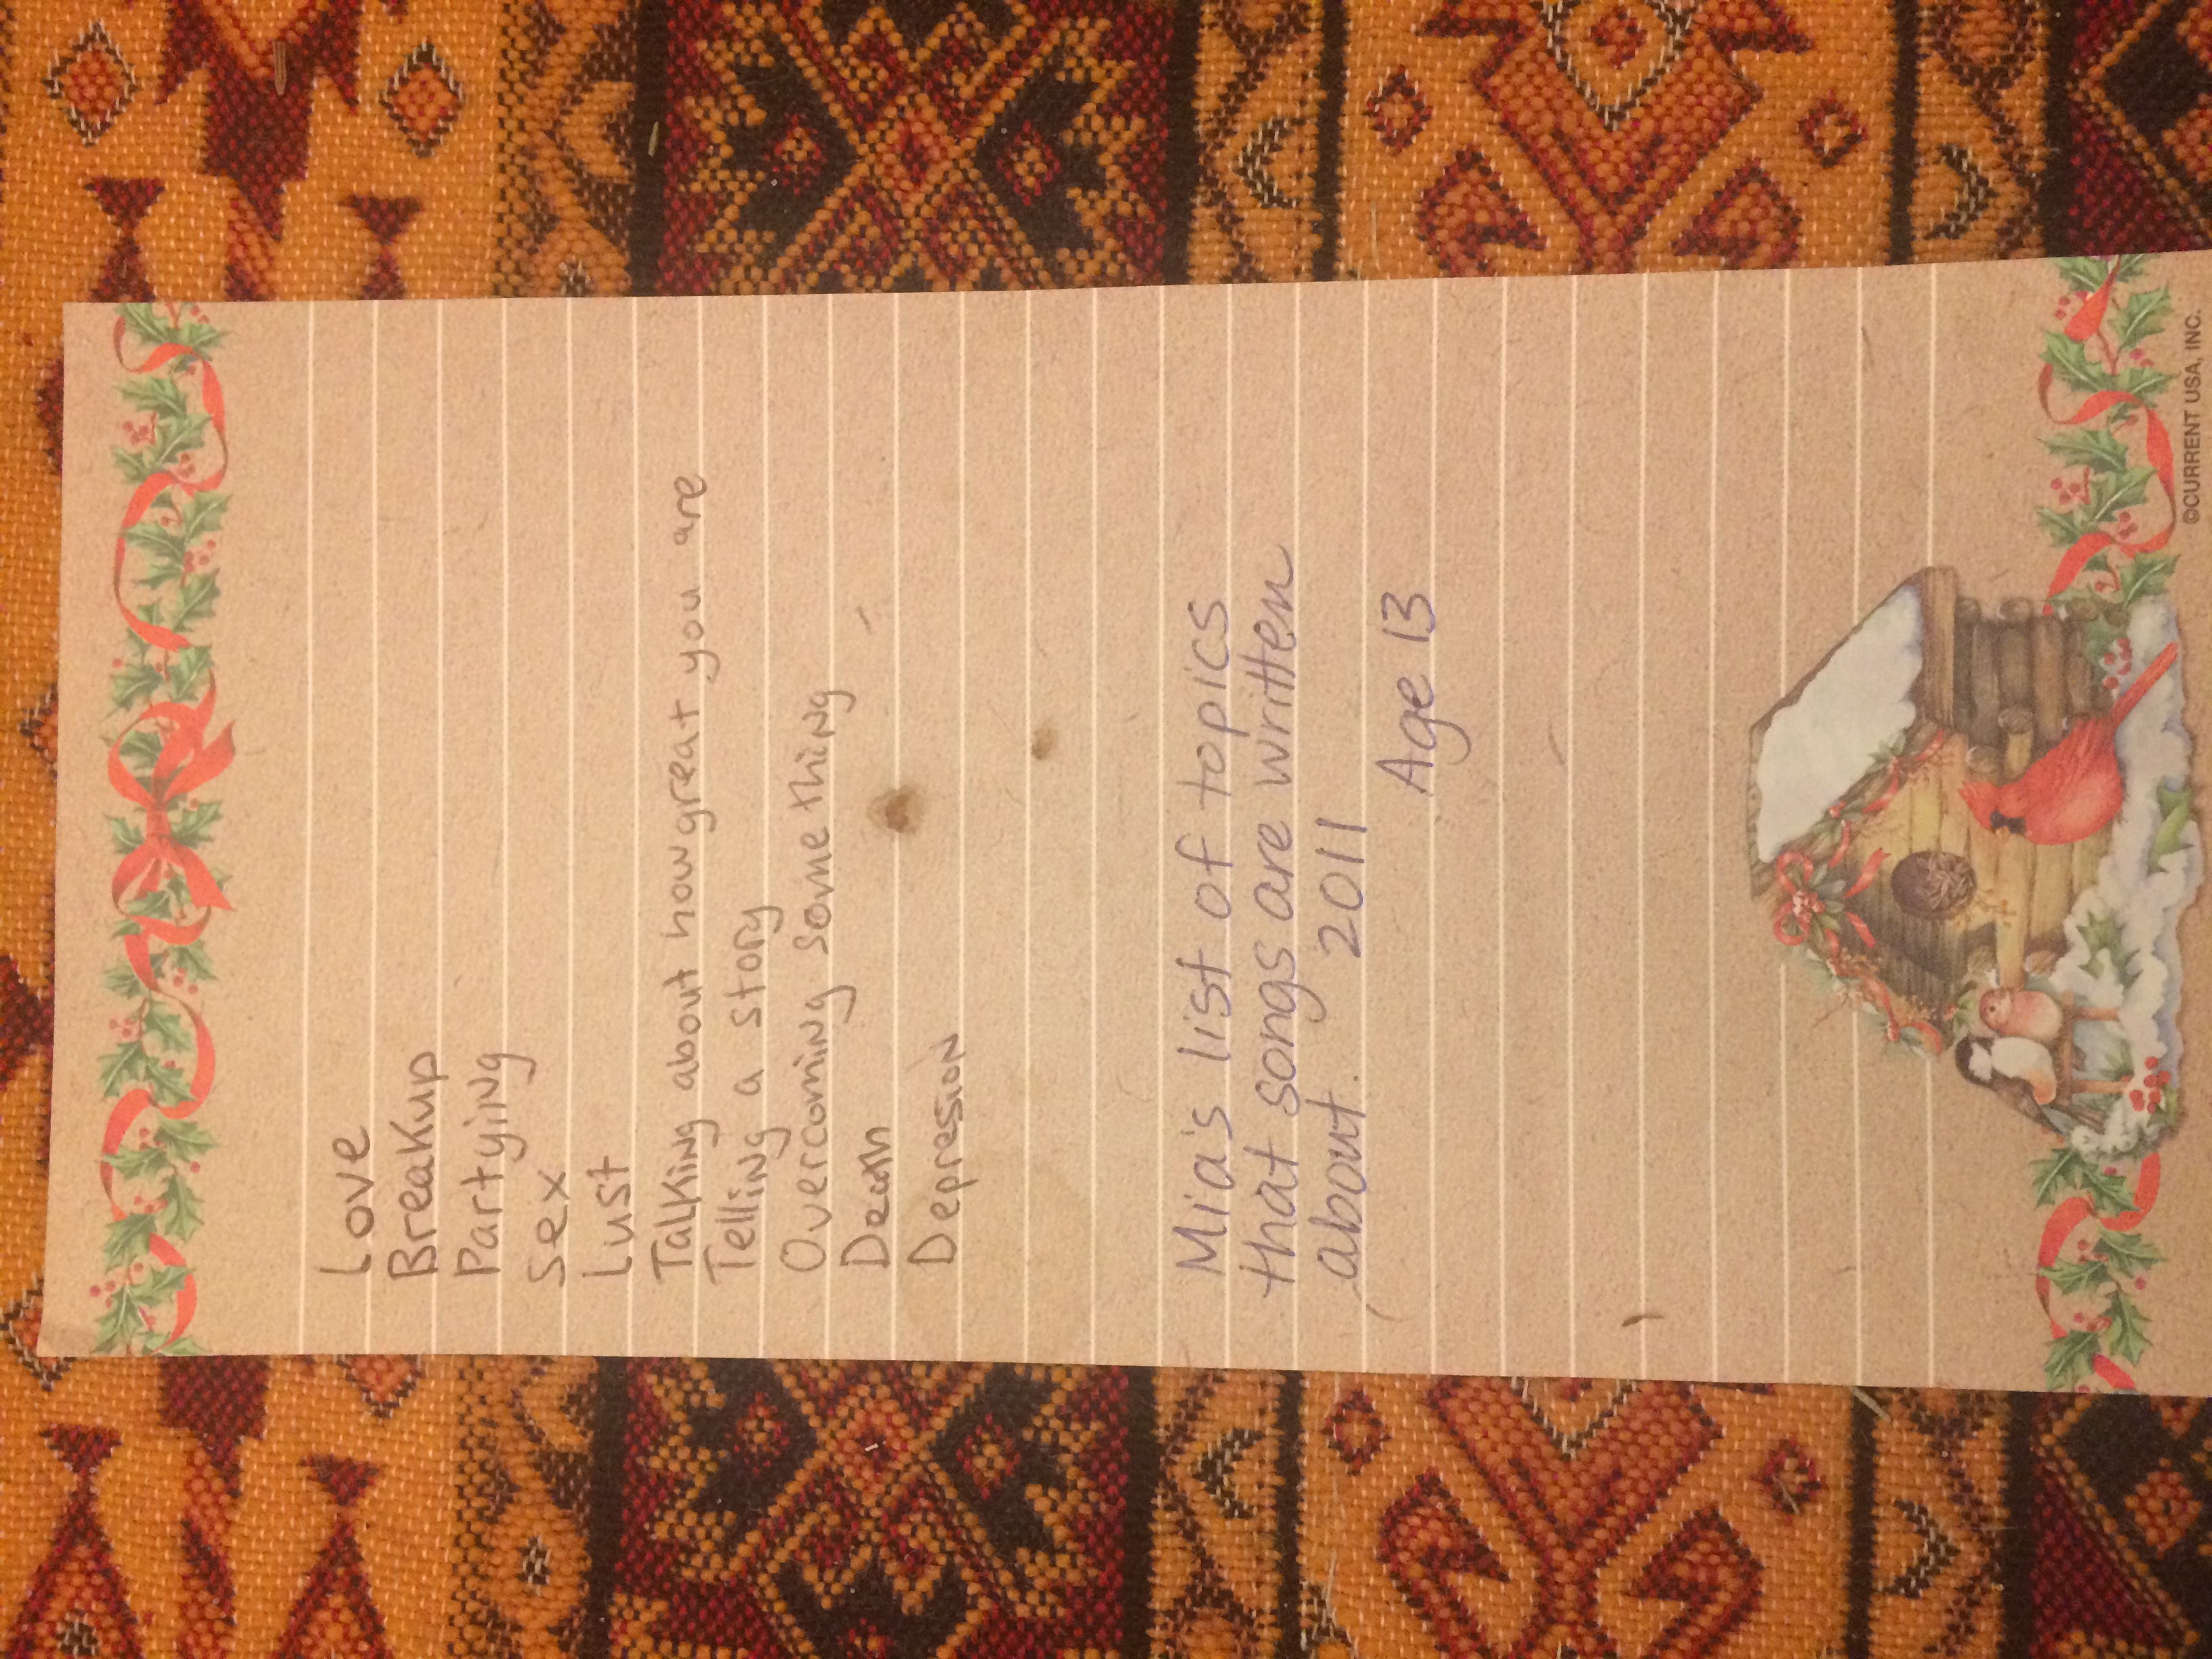 Love
Breakup
Partying
Sex
Lust
Talking about how great you are
Telling a story
Overcoming something
Death
Depresion
Mia's list of topics
that songs are written
about. 2011
Age 13
©CURRENT USA, INC.